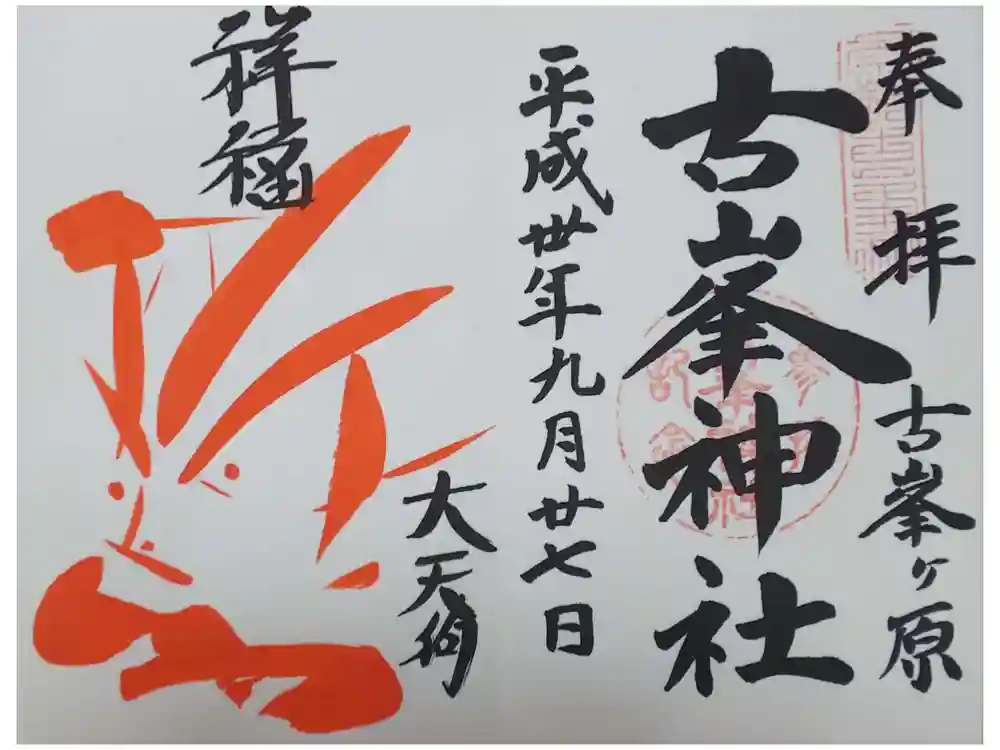 奉拝
古峯ヶ原
古峯神社
平成卅年九月廿七日
大天狗
祥福